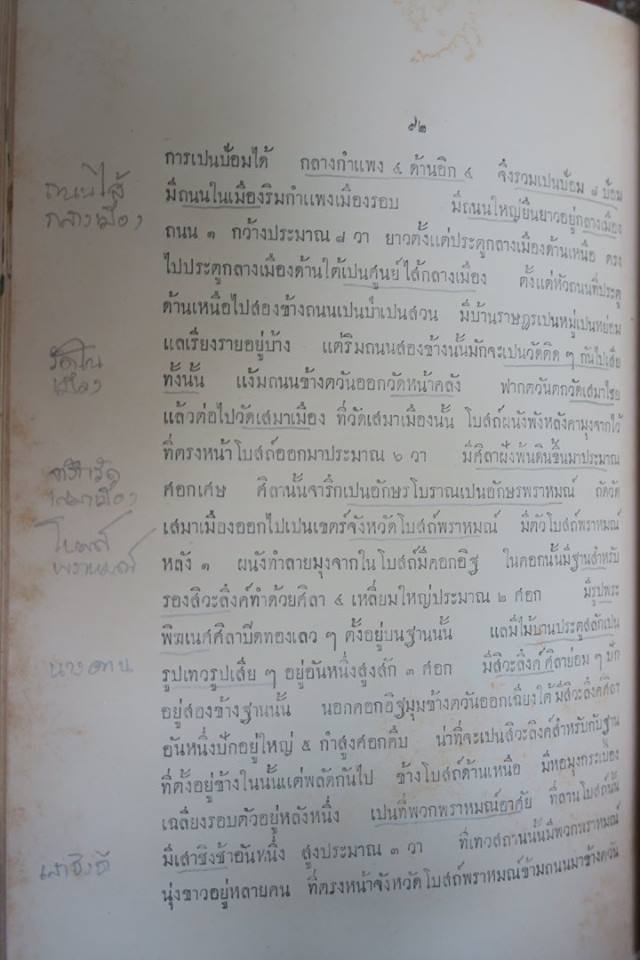 ๕๒
ถนนไส้
กลางเมือง
เสาชิงช้า
การเปนป้อมได้ กลางกำแพง ๔ ด้านอิก ๔ จึงรวมเปนป้อม ๘ ป้อม
มีถนนในเมืองริมกำแพงเมืองรอบ มีถนนใหญ่ยืนยาวอยู่กลางเมือง
ถนน ๑ กว้างประมาณ ๘ วา ยาวตั้งแต่ประตูกลางเมืองด้านเหนือ ตรง
ไปประตูกลางเมืองด้านใต้เปนศูนย์ไส้กลางเมือง ตั้งแต่หัวถนนที่ประตู
ด้านเหนือไปสองข้างถนนเปนป่าเปนสวน มีบ้านราษฎรเปนหมู่เปนหย่อม
แลเรียงรายอยู่บ้าง แต่ริมถนนสองข้างนั้นมักจะเปนวัดคิด ๆ กันไปเสีย
ทั้งนั้น แง้มถนนข้างตวันออกวัดหน้าคลัง ฟากตวันตกวัดเสมาไชย
แล้วต่อไปวัดเสมาเมือง ที่วัดเสมาเมืองนั้น โบสถ์ผนังพังหลังคามุงจากไว้
ที่ตรงหน้าโบสถ์ออกมาประมาณ ๖ วา มีศิลาฝังพ้นดินขึ้นมาประมาณ
ศอกเศษ ศิลานั้นจาริกเปนอักษรโบราณเปนอักษรพราหมณ์ ถัดวัด
เสมาเมืองออกไปเปนเขตร์จังหวัดโบสถ์พราหมณ์ มีตัวโบสถ์พราหมณ์
หลัง ๑ ผนังทำลายมุงจากในโบสถ์มีคอกอิฐ ในคอกนั้นมีฐานสำหรับ
รองสิวะลึงค์ทำด้วยศิลา ๔ เหลี่ยมใหญ่ประมาณ ๒ ศอก มีรูปพระ
พิฆเนศศิลาปิดทองเลว ๆ ตั้งอยู่บนฐานนั้น แลมีไม้บานประตูสลักเปน
รูปเทวรูปเสีย ๆ อยู่อันหนึ่งสูงสัก ๓ ศอก มีสิวะลึงค์ศิลาย่อม ๆ ปัก
อยู่สองข้างฐานนั้น นอกคอกอิฐมุมข้างตวันออกเฉียงใต้ มีสิวะลึงค์ศิลา
อันหนึ่งปักอยู่ใหญ่ ๕ กำสูงศอกคืบ น่าที่จะเปนสิวะลึงค์สำหรับกับฐาน
ที่ตั้งอยู่ข้างในนั้นแต่พลัดกันไป ข้างโบสถ์ด้านเหนือ มีหอมุงกระเบื้อง
เฉลียงรอบตัวอยู่หลังหนึ่ง เปนที่พวกพราหมณ์อาศัย ที่ลานโบสถ์นั้น
มีเสาชิงช้าอันหนึ่ง สูงประมาณ ๓ วา ที่เทวสถานนั้นมีพวกพราหมณ์
นุ่งขาวอยู่หลายคน ที่ตรงหน้าจังหวัดโบสถ์พราหมณ์ข้ามถนนมาข้างตวัน